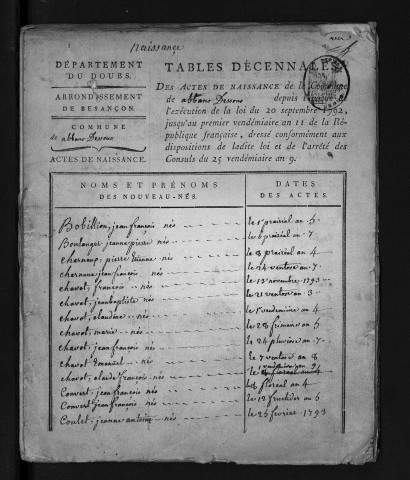 Naissance
DÉPARTEMENT
DU DOUBS.
ARRONDISSEMENT
DE BESANÇON.
COMMUNE
de abbans Dessous
ACTES DE NAISSANCE.
TABLES DÉCENNALES
DES ACTES DE NAISSANCE de la Commune
de abbans Dessous depuis l'époque de
l'exécution de la loi du 20 septembre 1792,
jusqu'au premier vendémiaire an 11 de la Ré-
publique française, dressé conformément aux
dispositions de ladite loi et de l'arrêté des
Consuls du 25 vendémiaire an 9.
NOMS ET PRÉNOMS
DES NOUVEAU-NÉS.
DATES
DES ACTES.
Bobillier, jean françois née le 1er prairial an 5
Boulanger jeanne pierre née le 6 prairial an 7
pierre Étienne né le 8 prairial an 4
jean françois né le 24 ventose an 7
chavot, françois né le 13 novembre 1793
chavot, jean baptiste né le 21 ventose an 3
chavot, claudine née le 1er vendemiaire an 4
chavot, marie née le 28 frimaire an 5
chavot, jean françois né le 24 pluviose an 7
chavot Emanuel né le 7 ventose an 8
chavot, claude françois né le vendemiaire an 9
Convert, jean françois né le 8 floréal an 4
Convert jean françois né le 12 fructidor an 5
Coulet, jeanne antoine née le 25 fevrier 1793